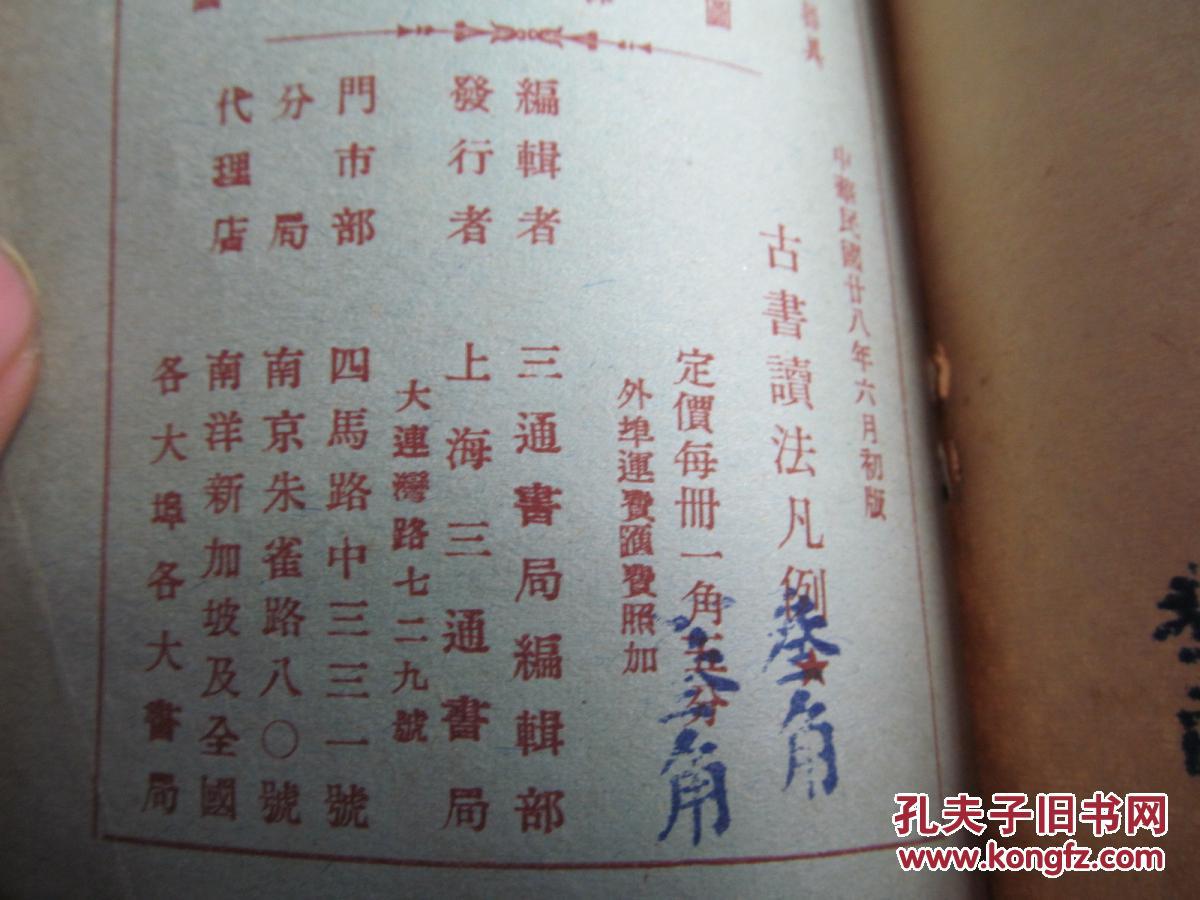 中華民國廿八年六月初版
古書讀法凡例★
定價每冊一角五分
外埠運費匯費照加
編輯者 三通書局編輯部
發行者 上海三通書局
大連灣路七二九號
門市部 四馬路中三三一號
分局 南京朱雀路八〇號
代理店 南洋新加坡及全國
各大埠各大書局
角
角
孔夫子旧书网
www.kongfz.com